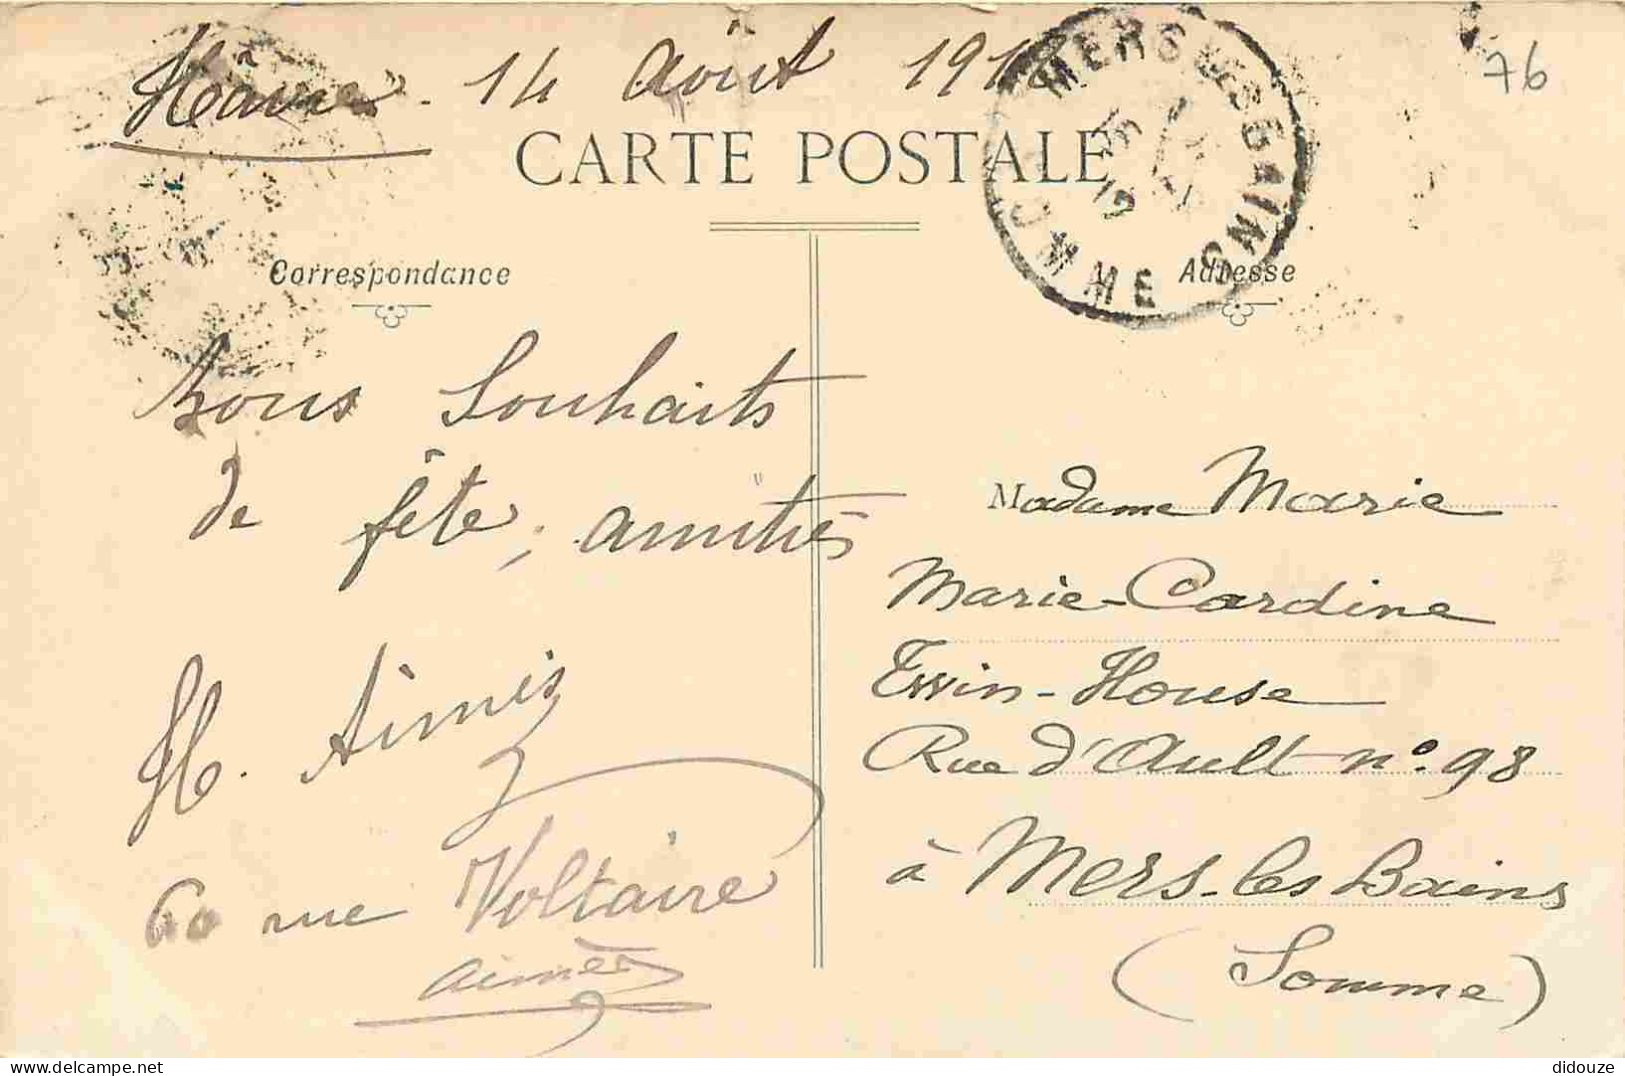 Hâvre. 14 Août 191
76
CARTE POSTALE
MERS LES BAINS
SOMME
12
Correspondance
Adresse
Bons Souhaits
de fête, amitiés
H. Aimé
60 rue Voltaire
Aimé
Madame Marie
Marie-Cardine
Twin-House
Rue d'Ault n° 98
à Mers-les Bains
(Somme)
didouze